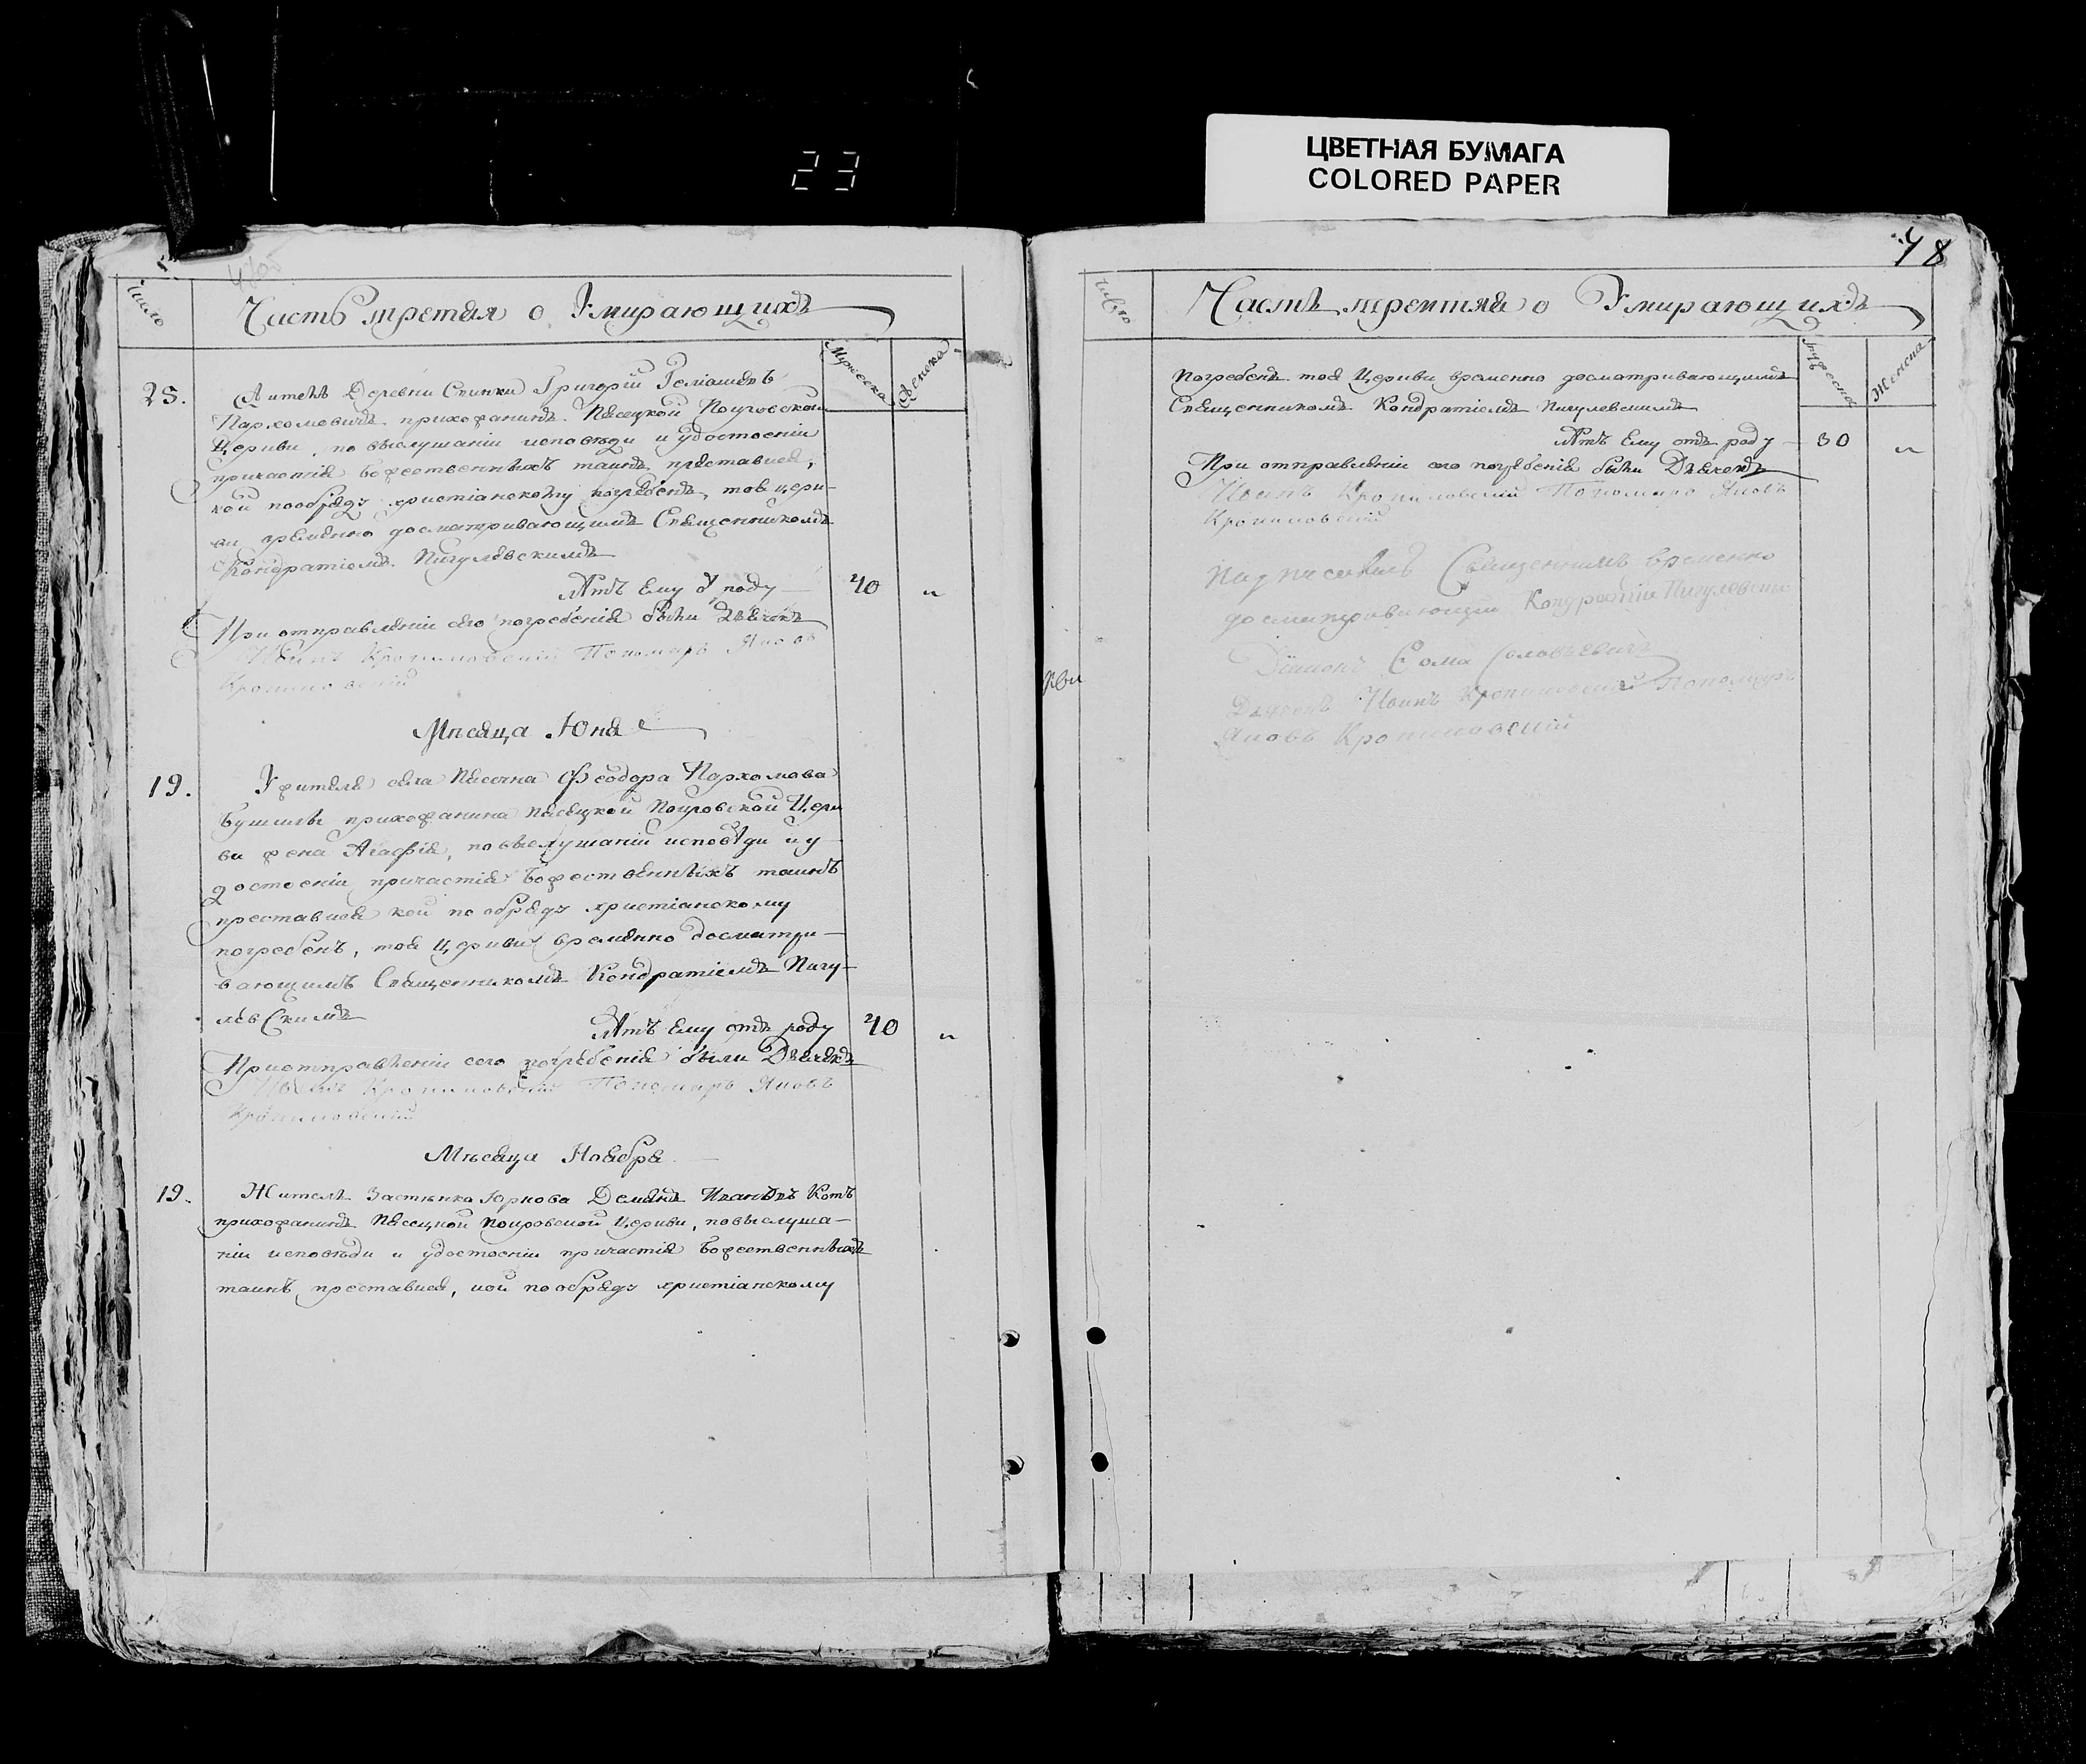 23
ЦВЕТНАЯ БУМАГА
COLORED PAPER
Число
Часть третия о Умирающихъ
Мужеска
Женска
25.
Житель Деревни Григорій
Пархомовичъ прихожанинъ Песецкой Покровской
Церкви, по выслушаніи исповѣди и удостоеніи
причастія божественныхъ таинъ преставися,
кой пообряду христіанскому погребенъ, тоя церк-
ви временно досматривающимъ Священникомъ
Кондратіемъ Пигулевскимъ
Лѣтъ Ему роду 40 "
При отправленіи сего погребенія были Дьячекъ
Иванъ Пономаръ Яковъ
Мѣсяца Юня
19.
Жителя села Песечна Феодора Пархомова
прихожанина Песецкой Покровской Церк
ви жена Агафія, повыслушаніи исповѣди и у
достоеніи причастія божественныхъ таинъ
преставися кой по обряду христіанскому
погребенъ, тоя Церкви временно досматри-
вающимъ Священникомъ Кондратіемъ Пигу-
левскимъ
Лѣтъ Ему отъ роду 40 "
Приотправленіи сего погребенія были Дьячекъ
Иванъ Пономаръ Яковъ
Мѣсяца Ноября
19.
Житель Застѣнка Юркова Демянъ Ивановъ Котъ
прихожанинъ Песецкой Покровской Церкви, повыслуша-
ніи исповѣди и удостоеніи причастія божественныхъ
таинъ преставися, кой пообряду христіанскому
48
Число
Часть третия о Умирающихъ
Женска
погребенъ тоя Церкви временно досматривающимъ
Священникомъ Кондратіемъ Пигулевскимъ
Лѣтъ Ему отъ роду 30 "
При отправленіи сего погребенія были Дьячекъ
Иванъ Пономаръ Яковъ
Священникъ временно
досматривающій Кондратій Пигулевскій
Фома
Дьячекъ Иванъ Пономаръ
Яковъ